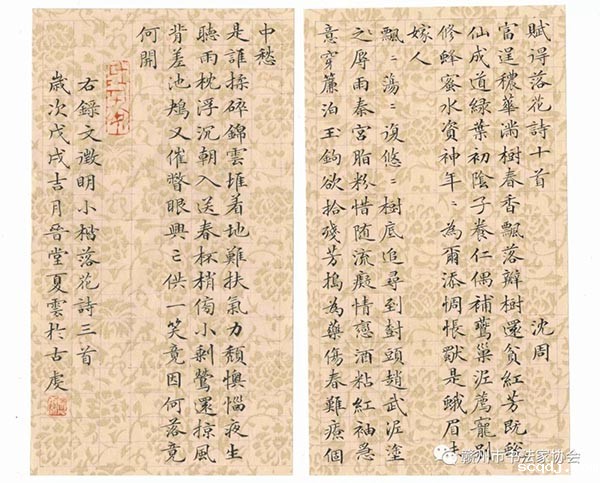 賦得落花詩十首　　沈周
富逞穠華滿樹春香飄落瓣樹還貧紅芳既蛻
仙成道綠葉初陰子養仁偶補鶯巢泥薦寵別
修蜂蜜水資神年〻為爾添惆悵獃是蛾眉
嫁人
飄〻蕩〻復悠〻樹底追尋到封頭趙武泥塗
之辱雨秦宮脂粉惜隨流癡情戀酒粘紅袖急
意穿簾泊玉鉤欲拾殘芳搗為藥傷春難療個
中愁
是誰揉碎錦雲堆着地難扶氣力頹懊惱夜生
聽雨枕浮沉朝入送春杯梢傍小剩鶯還掠風
背差池鴆又催瞥眼興〻供一笑竟因何落竟
何開
右錄文徵明小楷落花詩三首
歲次戊戌吉月晉堂夏雲於古虔
赣州市书法家协会
scqdj.com